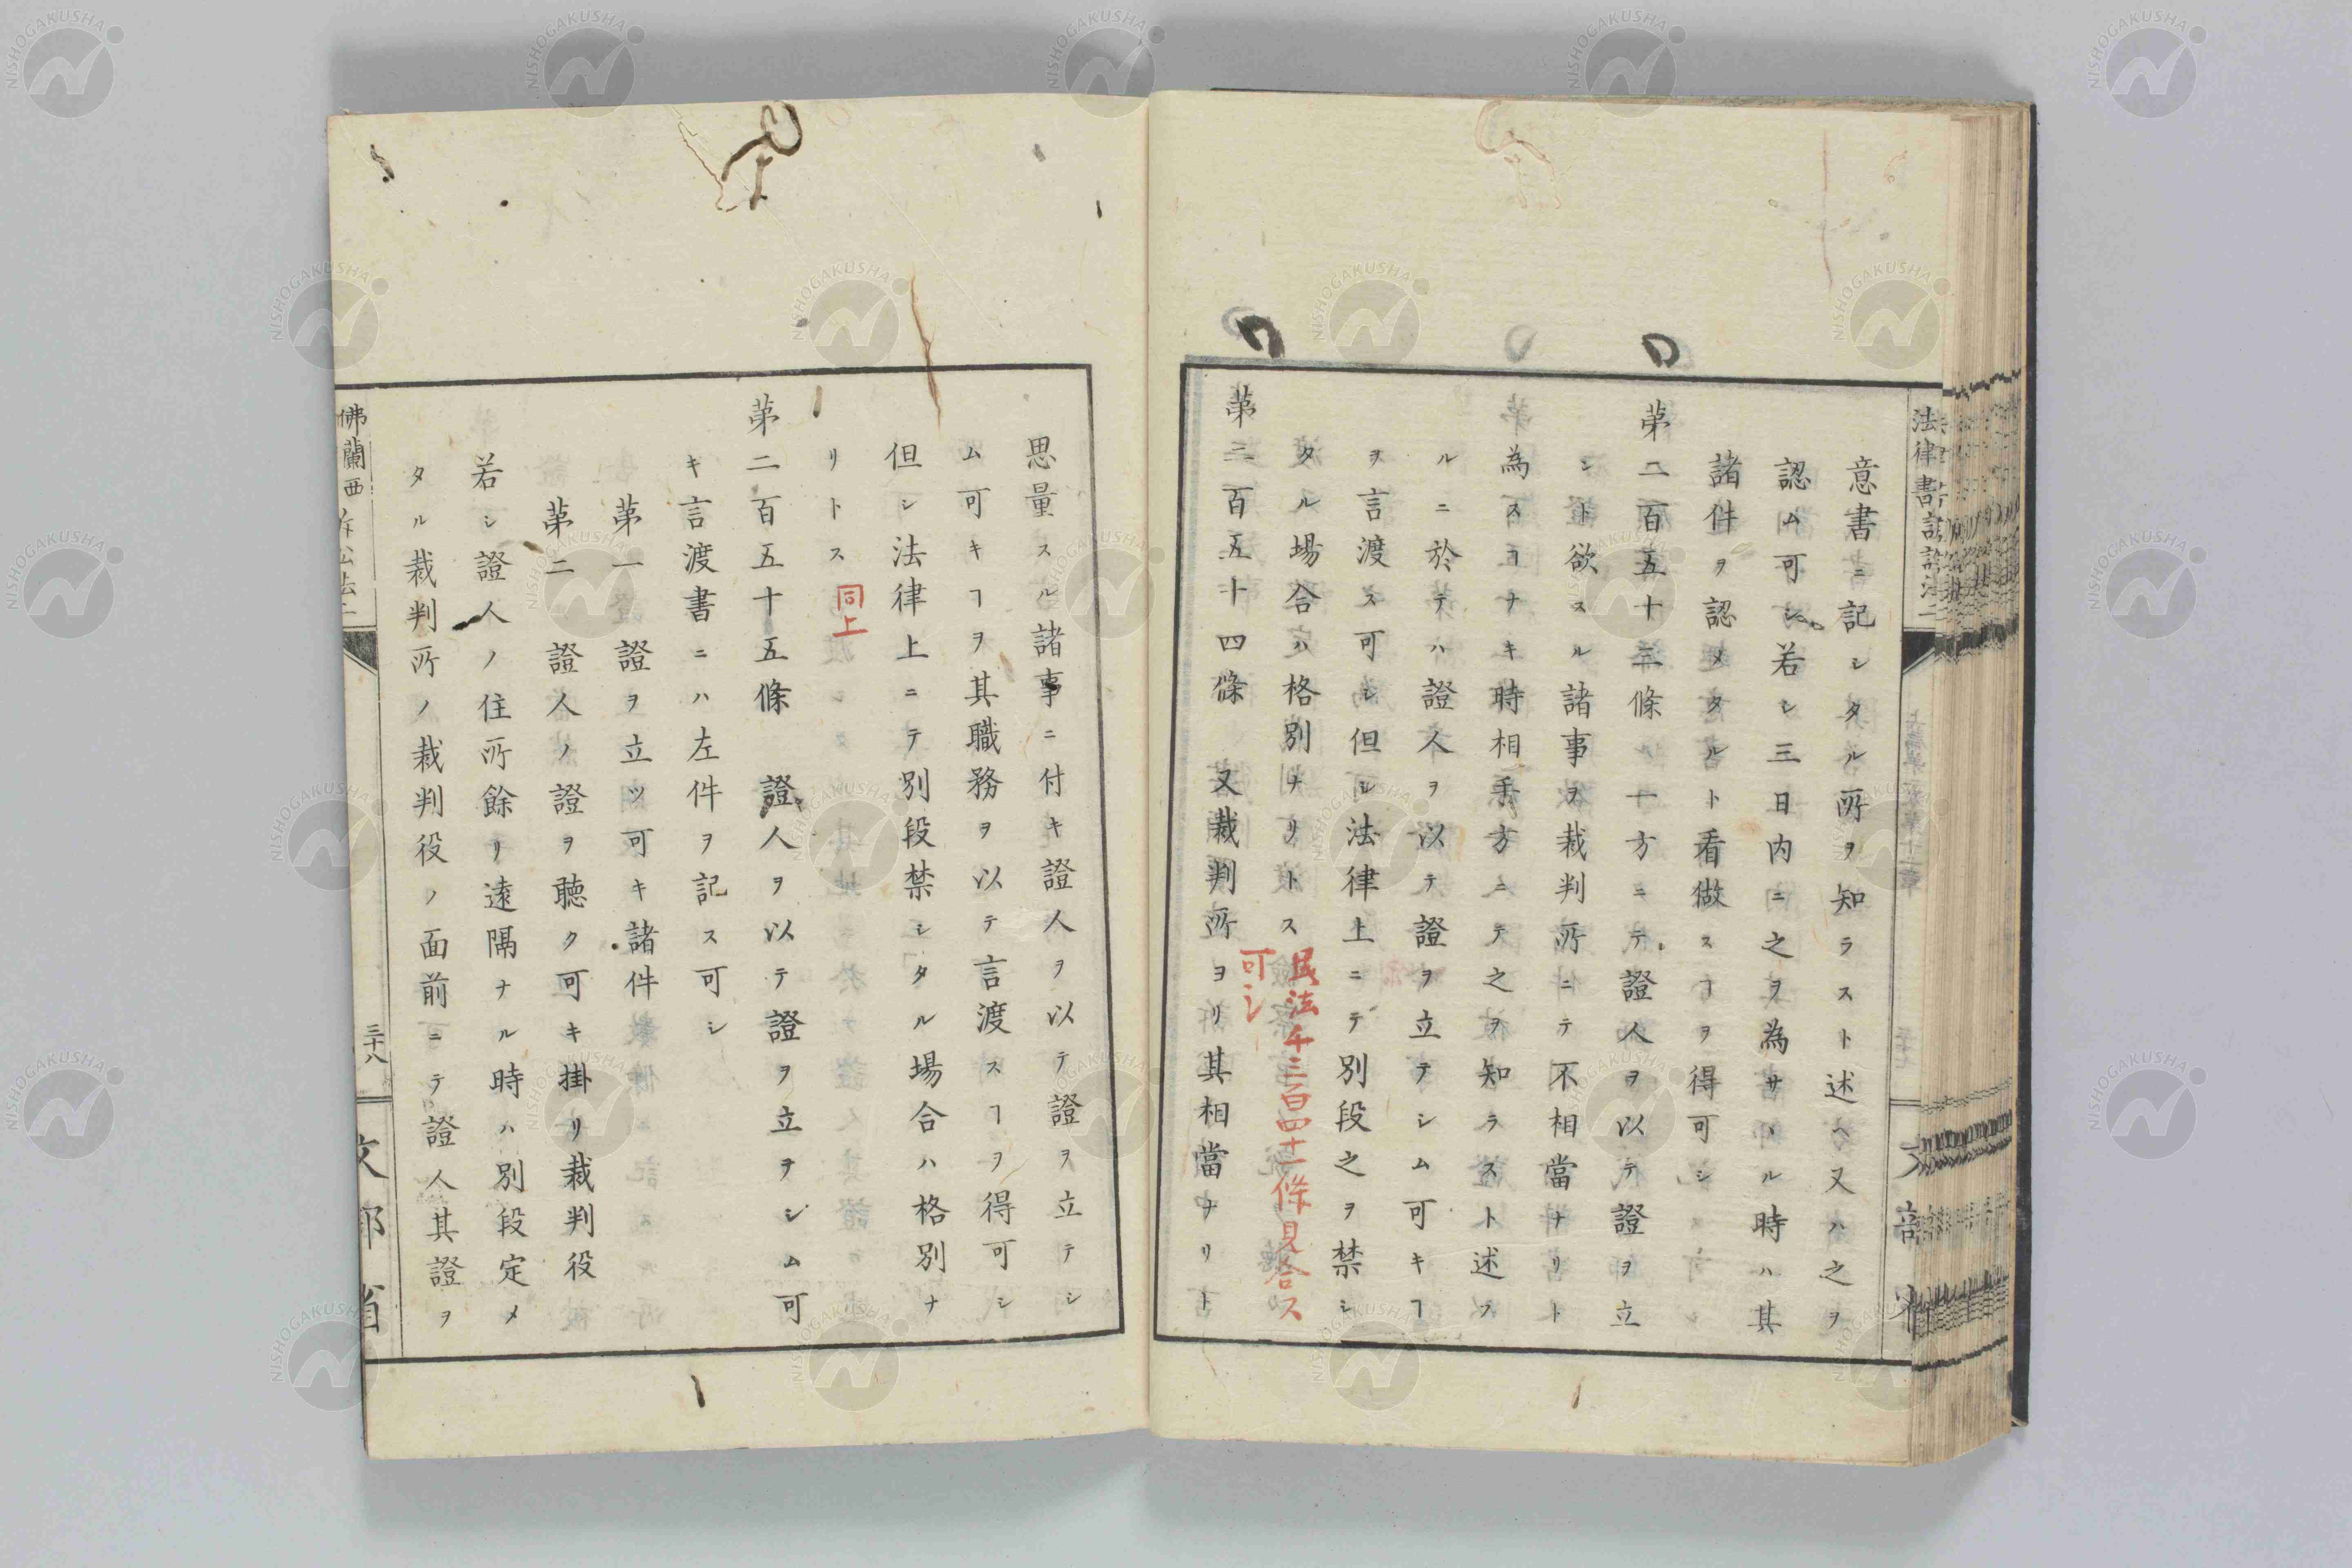 意書ニ記シタル所ヲ知ラスト述ヘ又ハ之ヲ
認ム可シ若シ三日内ニ之ヲ為サヽル時ハ其
諸件ヲ認メタルト看做スヿヲ得可シ
第二百五十三條 一方ニテ證人ヲ以テ證ヲ立
シト欲スル諸事ヲ裁判所ニテ不相當ナリト
為スヿナキ時相手方ニテ之ヲ知ラスト述フ
ルニ於テハ證人ヲ以テ證ヲ立テシム可キヿ
ヲ言渡ス可シ但シ法律上ニテ別段之ヲ禁シ
タル場合ハ格別ナリトス
民法千三百四十一條見合ス
可シ
第二百五十四條 又裁判所ヨリ其相當ナリト
思量スル諸事ニ付キ證人ヲ以テ證ヲ立テシ
ム可キヿヲ其職務ヲ以テ言渡スヿヲ得可シ
但シ法律上ニテ別段禁シタル場合ハ格別ナ
リトス 同上
第二百五十五條 證人ヲ以テ證ヲ立ヲシム可
キ言渡書ニハ左件ヲ記ス可シ
第一 證ヲ立ツ可キ諸件
第二 證人ノ證ヲ聴ク可キ掛リ裁判役
若シ證人ノ住所餘リ遠隔ナル時ハ別段定メ
タル裁判所ノ裁判役ノ面前ニテ證人其證ヲ
佛蘭西訴訟法二
三十八
文部省